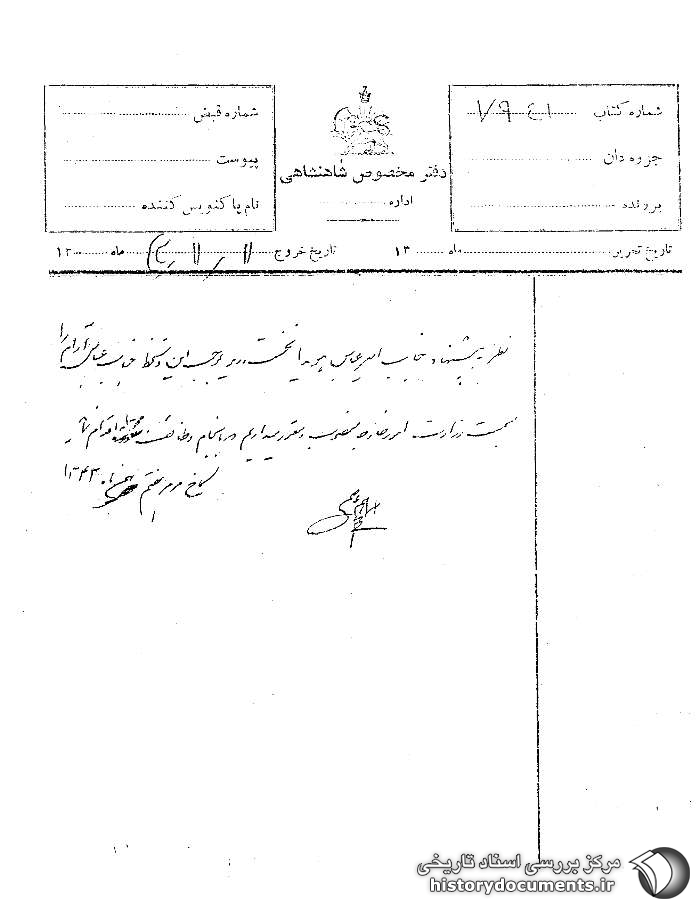 شماره کتاب
جزوه دان
پرونده
دفتر مخصوص شاهنشاهی
اداره
شماره قبض
پیوست
نام پاکنویس کننده
تاریخ تحریر ماه ۱۳
تاریخ خروج ماه ۱۳
نظر به پیشنهاد جناب امیرعباس هویدا نخست وزیر بموجب این دستخط جناب عباس آرام را
بسمت وزارت امور خارجه منصوب و مقرر میداریم در انجام وظائف محوله اقدام نماید
کاخ مرمر هفتم بهمن ماه ۱۳۴۳
مرکز بررسی اسناد تاریخی
historydocuments.ir